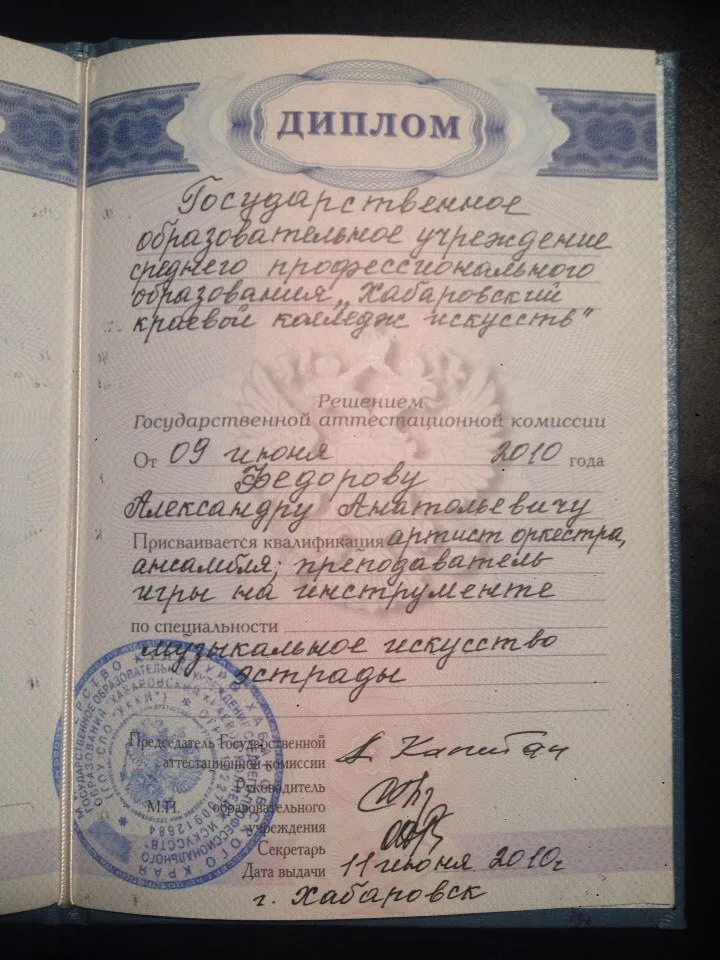 ДИПЛОМ
Государственное
образовательное учреждение
среднего профессионального
образования „Хабаровский
краевой колледж искусств"
Решением
Государственной аттестационной комиссии
От 09 июня 2010 года
Федорову
Александру Анатольевичу
Присваивается квалификация артист оркестра,
ансамбля; преподаватель
игры на инструменте
по специальности
музыкальное искусство
эстрады
Председатель Государственной
аттестационной комиссии
Руководитель
М.П. образовательного
учреждения
Секретарь
Дата выдачи 11 июня 2010г
г. Хабаровск